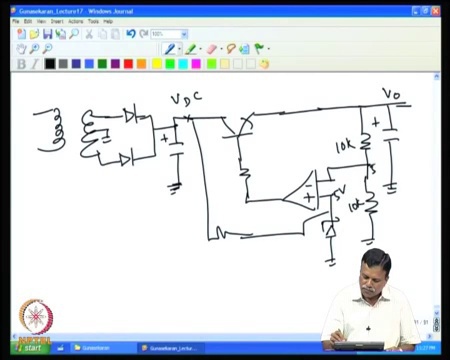 Gunasekaran_Lecture17 - Windows Journal
File Edit View Insert Actions Tools Help
100%
B I
VDC
VO
+
+
10k
-
+
5V
10k
NPTEL
start
Gunasekaran
Gunasekaran_Lectu...